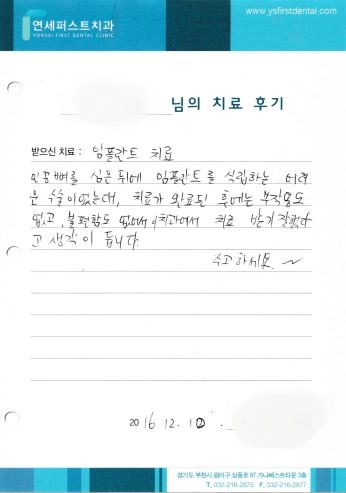 www.ysfirstdental.com
연세퍼스트치과
YONSEI FIRST DENTAL CLINIC
님의 치료 후기
받으신 치료 : 임플란트 치료
인공뼈를 심은 뒤에 임플란트를 식립하는 어려
운 수술이었는데, 치료가 완료된 후에는 부작용도
없고, 불편함도 없어서 이치과에서 치료 받기 잘했다
고 생각이 듭니다.
수고하세요 ~
2016. 12. 10
경기도 부천시 원미구 상동로 87.가나베스트타운 3층
T. 032-216-2875 F. 032-216-2877